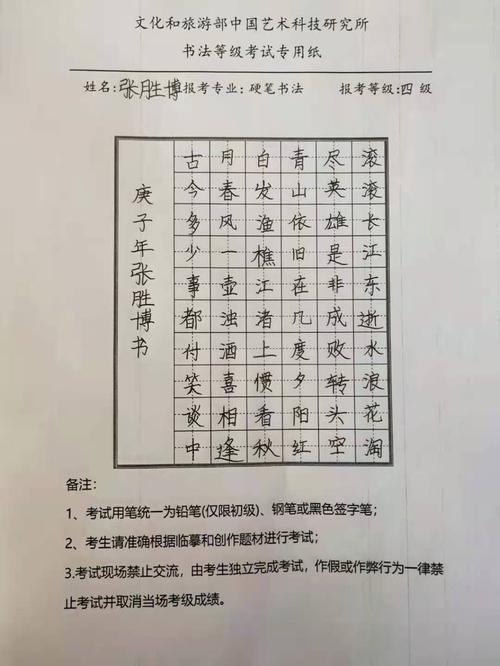 文化和旅游部中国艺术科技研究所
书法等级考试专用纸
姓名:张胜博 报考专业:硬笔书法 报考等级:四 级
滚滚长江东逝水浪花淘
尽英雄是非成败转头空
青山依旧在几度夕阳红
白发渔樵江渚上惯看秋
月春风一壶浊酒喜相逢
古今多少事都付笑谈中
庚子年张胜博书
备注:
1、考试用笔统一为铅笔(仅限初级)、钢笔或黑色签字笔;
2、考生请准确根据临摹和创作题材进行考试;
3.考试现场禁止交流，由考生独立完成考试，作假或作弊行为一律禁
止考试并取消当场考级成绩。